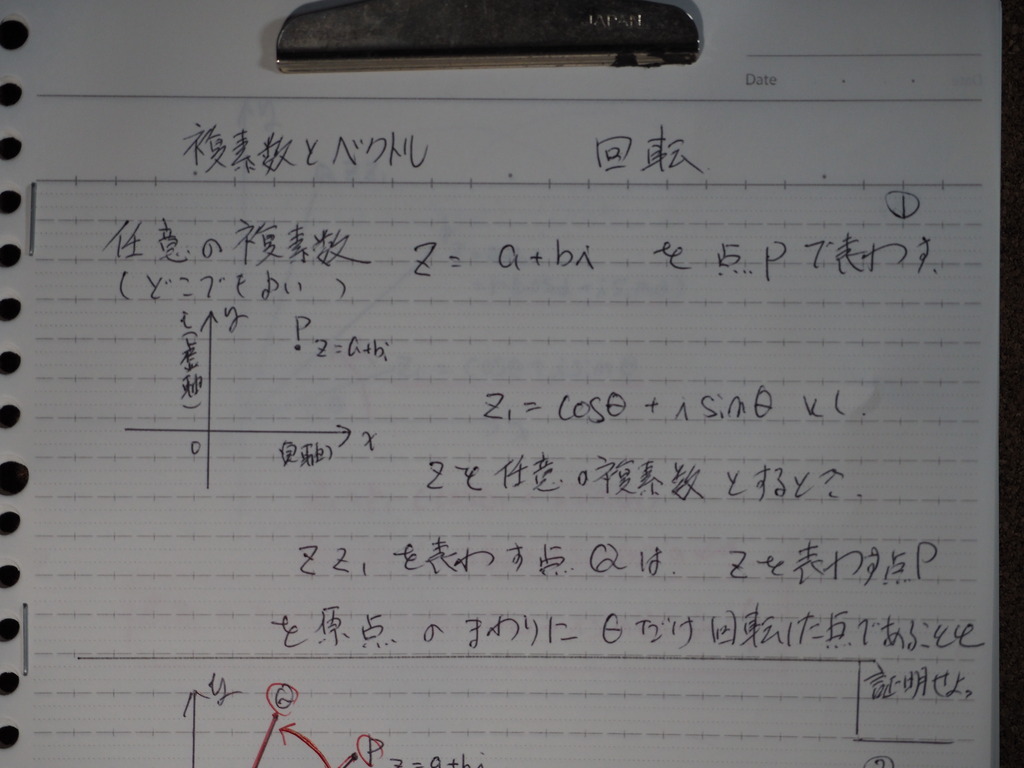 JAPAN
Date
複素数とベクトル 回転
①
任意の複素数 z = a+bi を点Pで表わす.
(どこでもよい)
y
i(虚軸)
P
z=a+bi
0 (実軸) x
z₁ = cosθ + i sinθ とし.
zを任意の複素数とするとき.
z z₁ を表わす点Qは. zを表わす点P
を原点のまわりにθだけ回転した点であることを
証明せよ。
y Q
P z=a+bi
②